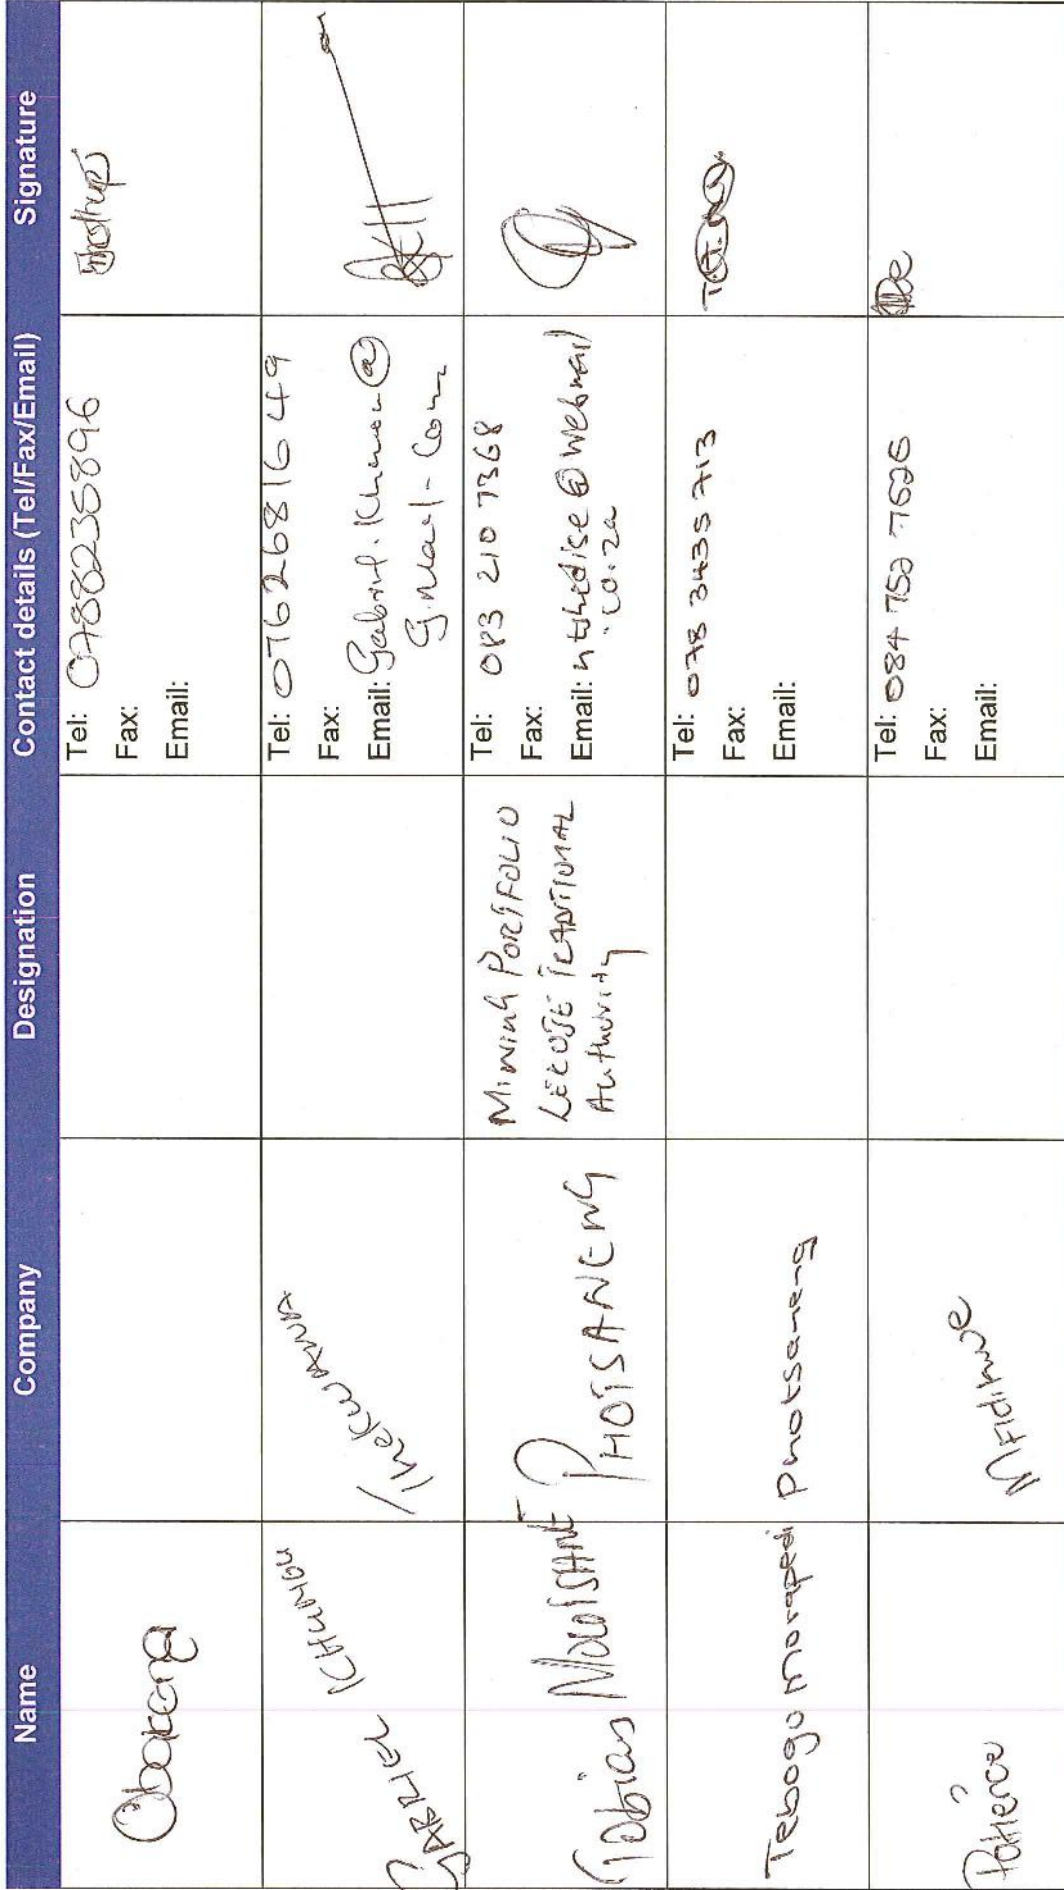 Name Company Designation Contact details (Tel/Fax/Email) Signature
Obakeng
Tel: 0788235896
Fax:
Email:
GABRIEL KHUMOU
Tel: 0762681649
Fax:
Email: Gabriel.Khumou@
Gmail-Com
Tobias
PHOTSANENG
Mining PORTFOLIO
LEKOJE TRADITIONAL
Authority
Tel: 083 210 7368
Fax:
Email: ntshedise@webmail
.co.za
Tebogo Morapedi
Photsaneng
Tel: 078 3435 713
Fax:
Email:
Patience
Mfidikwe
Tel: 084 752 7626
Fax:
Email: